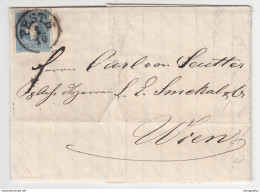 PESTH
Herrn Carl von Sautter
L. E. Smekal & Co
Wien